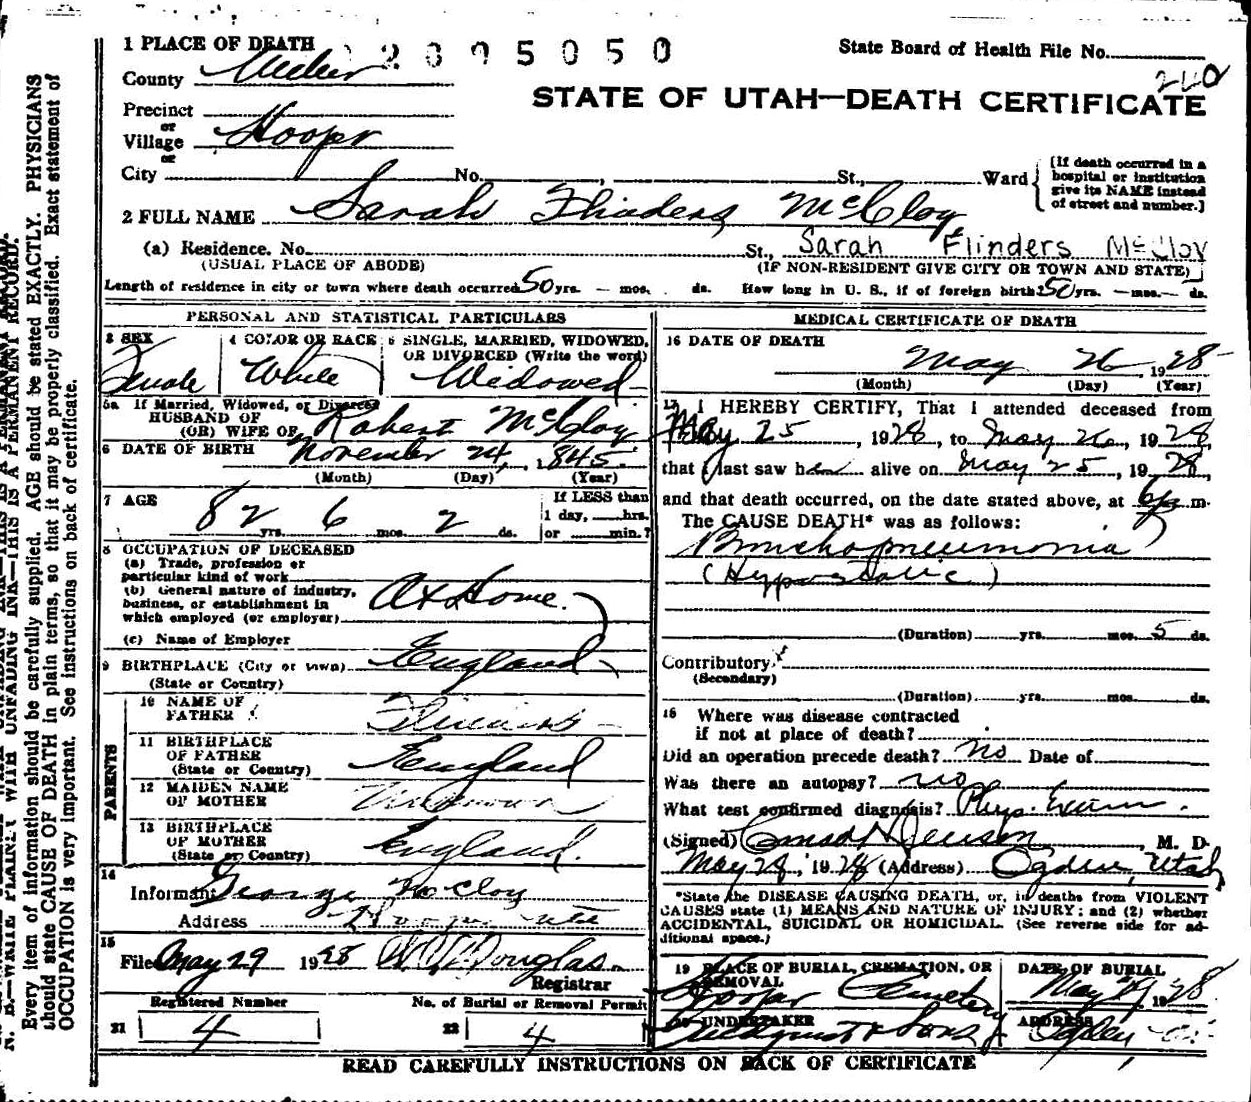 1 PLACE OF DEATH
2095050
State Board of Health File No.
County Weber
240
STATE OF UTAH—DEATH CERTIFICATE
Precinct
or
Village Hooper
or
City No. , St., Ward
[If death occurred in a
hospital or institution
give its NAME instead
of street and number.]
2 FULL NAME Sarah Flinders McCloy
(a) Residence. No. St., Sarah Flinders McCloy
(USUAL PLACE OF ABODE) (IF NON-RESIDENT GIVE CITY OR TOWN AND STATE)
Length of residence in city or town where death occurred 50 yrs. — mos. ds. How long in U. S., if of foreign birth? 50 yrs. — mos. — ds.
PERSONAL AND STATISTICAL PARTICULARS
3 SEX
Female
4 COLOR OR RACE
White
5 SINGLE, MARRIED, WIDOWED,
OR DIVORCED (Write the word)
Widowed
5a If Married, Widowed, or Divorced
HUSBAND OF
(OR) WIFE OF Robert McCloy
6 DATE OF BIRTH November 24, 1845
(Month) (Day) (Year)
7 AGE
82 yrs. 6 mos. 2 ds.
If LESS than
1 day, hrs.
or min.?
8 OCCUPATION OF DECEASED
(a) Trade, profession or
particular kind of work
(b) General nature of industry,
business, or establishment in
which employed (or employer)
At Home
(c) Name of Employer
9 BIRTHPLACE (City or town) England
(State or Country)
PARENTS
10 NAME OF
FATHER Flinders
11 BIRTHPLACE
OF FATHER England
(State or Country)
12 MAIDEN NAME
OF MOTHER Unknown
13 BIRTHPLACE
OF MOTHER England.
(State or Country)
14
Informant George McCloy
Address Hooper Utah
15
Filed May 29 1928 Douglas
Registrar
Registered Number No. of Burial or Removal Permit
21 4 22 4
MEDICAL CERTIFICATE OF DEATH
16 DATE OF DEATH
May 26 1928
(Month) (Day) (Year)
17 I HEREBY CERTIFY, That I attended deceased from
May 25, 1928, to May 26, 1928
that I last saw her alive on May 25, 1928,
and that death occurred, on the date stated above, at 6p m.
The CAUSE DEATH* was as follows:
Bronchopneumonia
(Hypostatic)
(Duration) yrs. mos. 5 ds.
Contributory
(Secondary)
(Duration) yrs. mos. ds.
18 Where was disease contracted
if not at place of death?
Did an operation precede death? no Date of
Was there an autopsy? no
What test confirmed diagnosis? Phys. Exam.
(Signed) Conrad H Jenson, M. D.
May 28, 1928 (Address) Ogden, Utah
*State the DISEASE CAUSING DEATH, or, in deaths from VIOLENT
CAUSES state (1) MEANS AND NATURE OF INJURY; and (2) whether
ACCIDENTAL, SUICIDAL OR HOMICIDAL. (See reverse side for ad-
ditional space.)
19 PLACE OF BURIAL, CREMATION, OR
REMOVAL
Hooper Cemetery
DATE OF BURIAL
May 29 1928
20 UNDERTAKER
Lindquist & Sons
ADDRESS
Ogden
READ CAREFULLY INSTRUCTIONS ON BACK OF CERTIFICATE
N. B.—WRITE PLAINLY WITH UNFADING INK—THIS IS A PERMANENT RECORD.
Every item of information should be carefully supplied. AGE should be stated EXACTLY. PHYSICIANS
should state CAUSE OF DEATH in plain terms, so that it may be properly classified. Exact statement of
OCCUPATION is very important. See instructions on back of certificate.